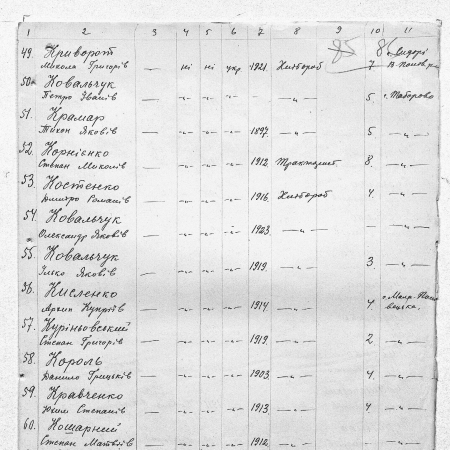 1 2 3 4 5 6 7 8 9 10 11
49. Криворот 85 8 с. Сидорі
Микола Григорів — ні ні укр. 1921. Хлібороб 7
50. Ковальчук
Петро Іванів — -"- -"- -"- — -"- — 5. с. Таборова
51. Крамар
Тихон Яковів — -"- -"- -"- 1897. — -"- — 5 — -"- —
52. Корнієнко
Степан Миколів — -"- -"- -"- 1912. Тракторист 8. — -"- —
53. Костенко
Дмитро Романів — -"- -"- -"- 1916. Хлібороб 4. — -"- —
54. Ковальчук
Олександр Яковів — -"- -"- -"- 1923 — -"- — — -"- —
55. Ковальчук
Ілько Яковів — -"- -"- -"- 1919. — -"- — 3. — -"- —
56. Кисленко
Архип Купріїв — -"- -"- -"- 1914. — -"- — 4.
57. Куріньовський
Степан Григорів — -"- -"- -"- 1919. — -"- — 2 — -"- —
58. Король
Данило Грицьків — -"- -"- -"- 1903. — -"- — 4. — -"- —
59. Кравченко
Юхим Степанів — -"- -"- -"- 1913. — -"- — 4 — -"- —
60. Кошарний
Степан Матвіїв — -"- -"- -"- 1912. — -"- — — -"- —